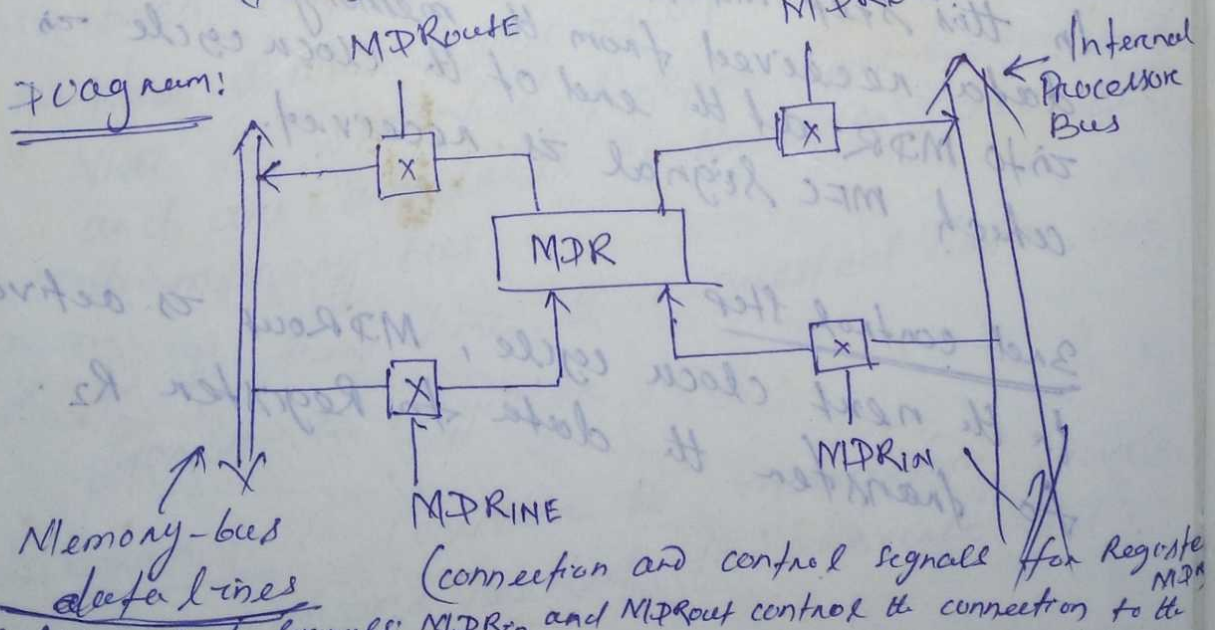 MDRoutE
Diagram:
Internal
Processor
Bus
X
X
MDR
X
X
MDRIN
MDRINE
Memory-bus
data lines
(connection and control signals for Registe
MDR
MDRin and MDRout control the connection to the